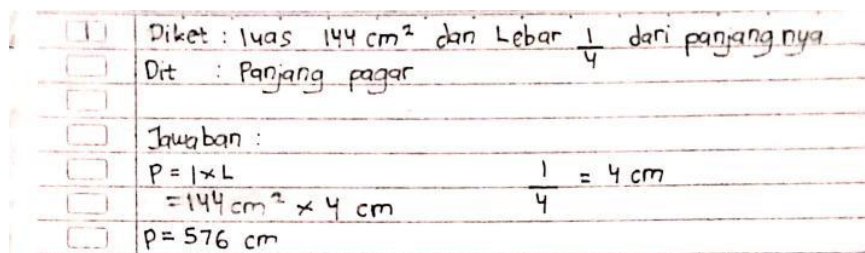 1 Diket : luas 144 cm² dan Lebar 1/4 dari panjangnya
Dit : Panjang pagar
Jawaban :
P = l × L 1/4 = 4 cm
= 144 cm² × 4 cm
p = 576 cm